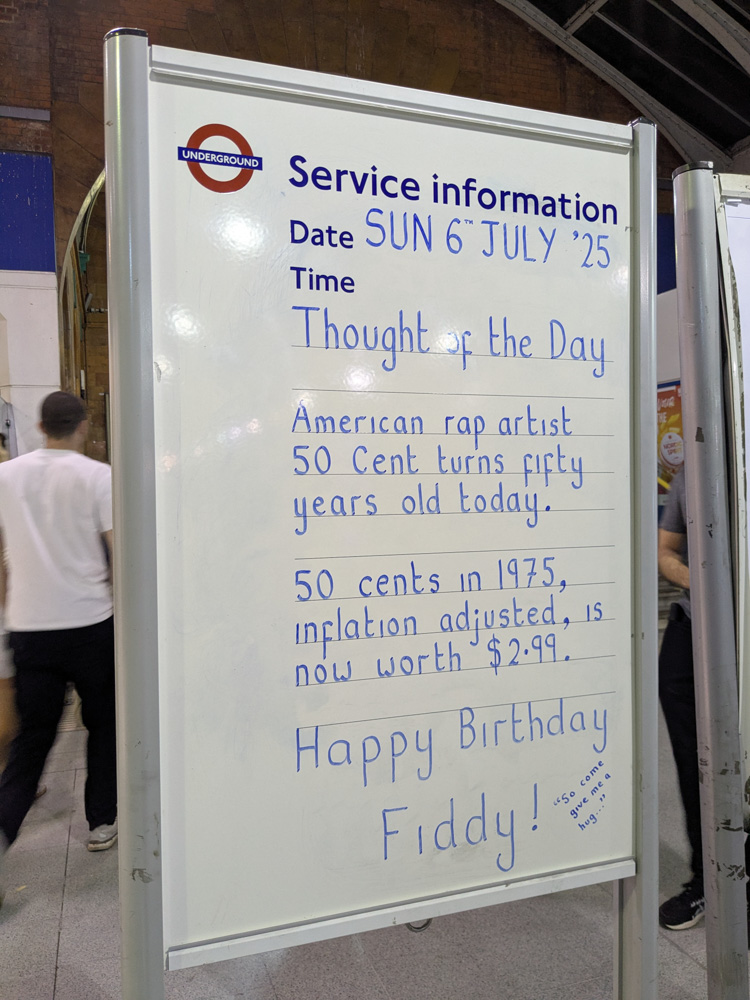 UNDERGROUND
Service information
Date SUN 6TH JULY '25
Time
Thought of the Day
American rap artist
50 Cent turns fifty
years old today.
50 cents in 1975,
inflation adjusted, is
now worth $2.99.
Happy Birthday
Fiddy!
"So come
give me a
hug..."